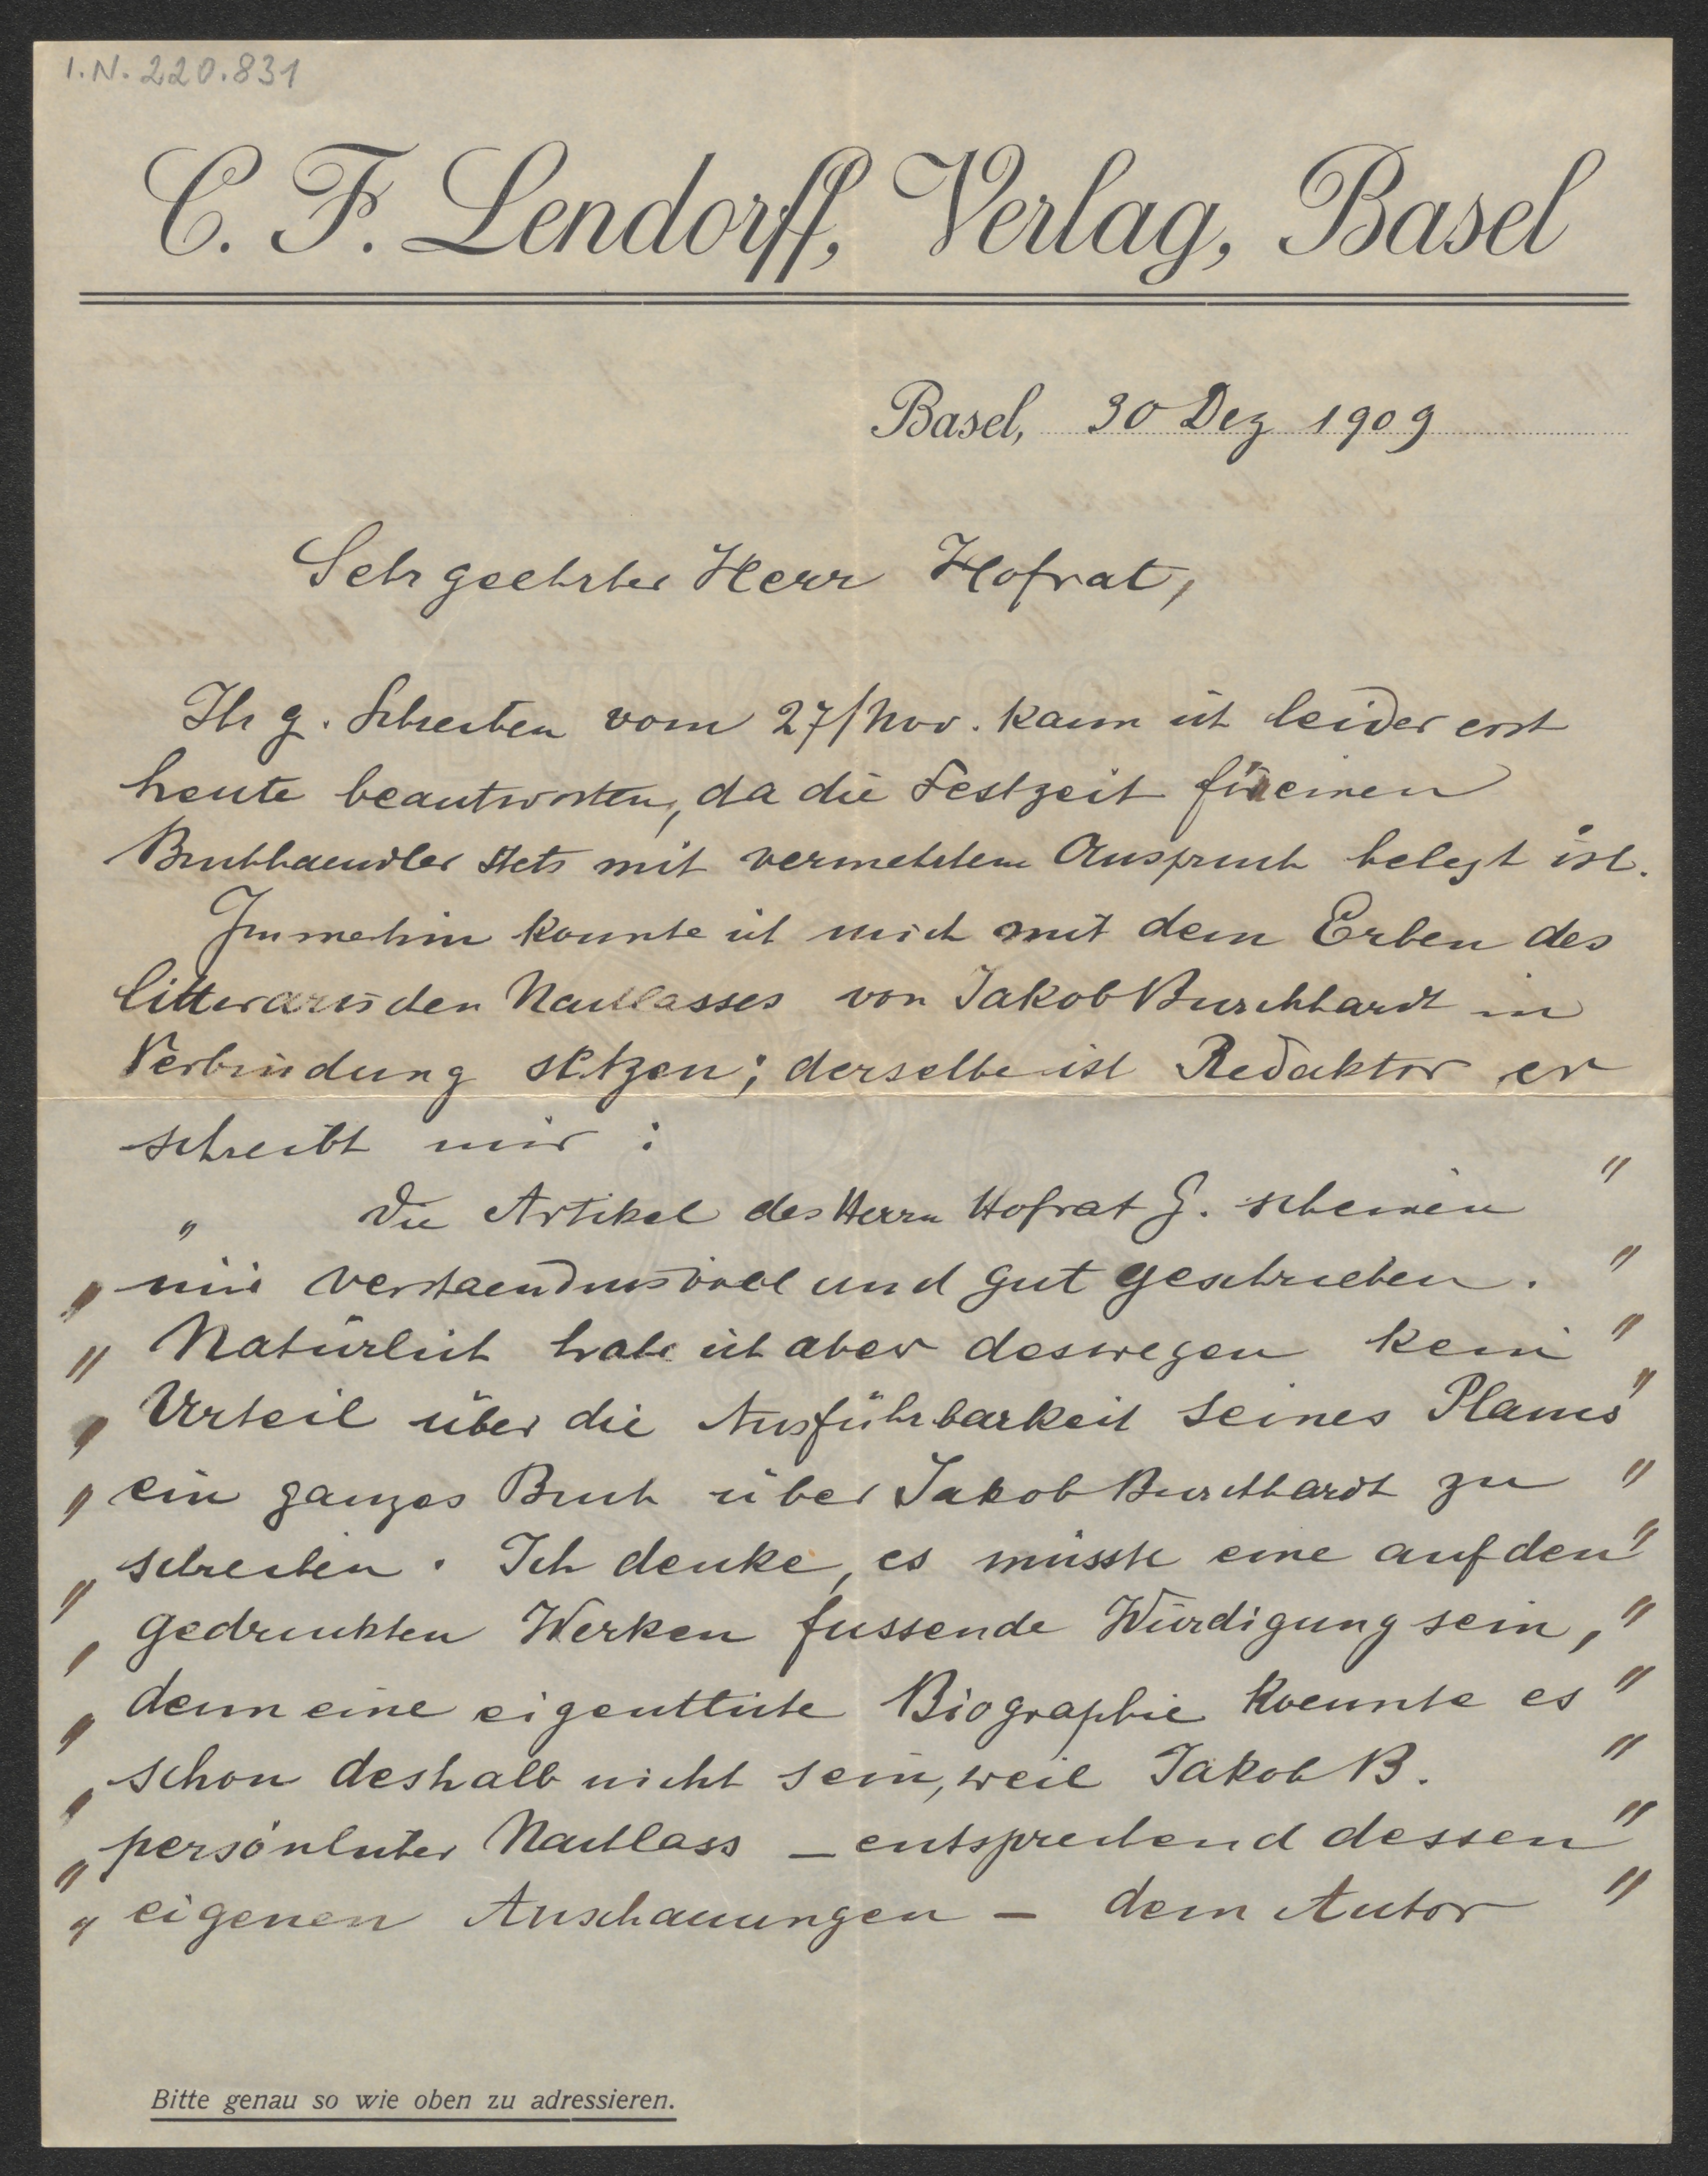 I.N. 220.831
C. F. Lendorff, Verlag, Basel
Basel, 30 Dez 1909
Sehr geehrter Herr Hofrat,
Ihr g. Schreiben vom 27/Nov. kann ich leider erst
heute beantworten, da die Festzeit für einen
Buchhaendler stets mit vermehrtem Anspruch belegt ist.
Immerhin konnte ich mich mit dem Erben des
litterarischen Nachlasses von Jakob Burckhardt in
Verbindung setzen; derselbe ist Redaktor er
schreibt mir:
" Die Artikel des Herrn Hofrat G. scheinen "
" mir verstaendnisvoll und gut geschrieben. "
" Natürlich habe ich aber deswegen kein "
" Urteil über die Ausführbarkeit seines Planes "
" ein ganzes Buch über Jakob Burckhardt zu "
" schreiben. Ich denke, es müsste eine auf den "
" gedruckten Werken fussende Würdigung sein, "
" denn eine eigentliche Biographie koennte es "
" schon deshalb nicht sein, weil Jakob B. "
" persönlicher Nachlass – entsprechend dessen "
" eigenen Anschauungen – dem Autor "
Bitte genau so wie oben zu adressieren.